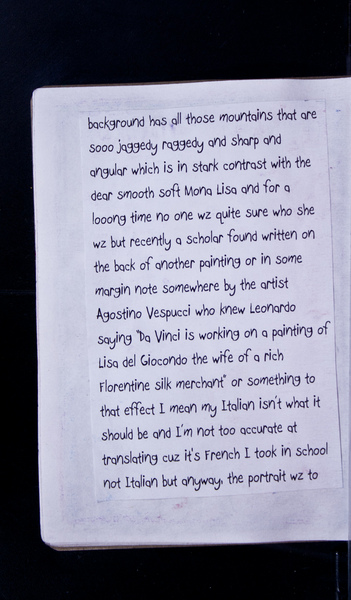 background has all those mountains that are
sooo jaggedy raggedy and sharp and
angular which is in stark contrast with the
dear smooth soft Mona Lisa and for a
looong time no one wz quite sure who she
wz but recently a scholar found written on
the back of another painting or in some
margin note somewhere by the artist
Agostino Vespucci who knew Leonardo
saying "Da Vinci is working on a painting of
Lisa del Giocondo the wife of a rich
Florentine silk merchant" or something to
that effect I mean my Italian isn't what it
should be and I'm not too accurate at
translating cuz it's French I took in school
not Italian but anyway, the portrait wz to